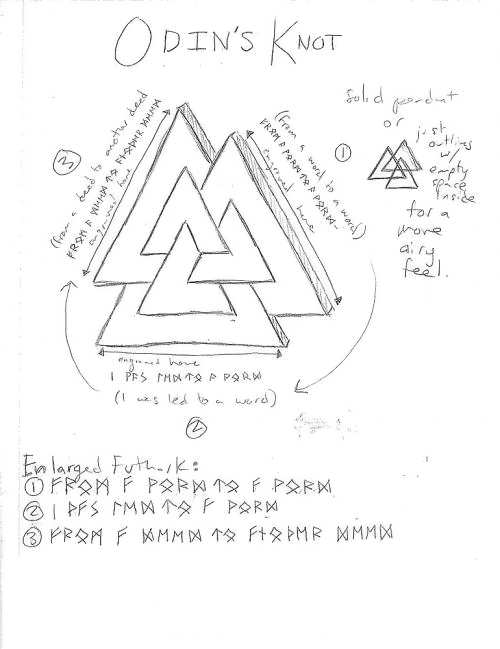 ODIN'S KNOT
Solid pendant
or
just
outlines
w/
empty
space
inside
for a
more
airy
feel.
①
(from a word to a word)
ᚠᚱᛟᛗ ᚨ ᚹᛟᚱᛞ ᛏᛟ ᚨ ᚹᛟᚱᛞ
engraved here
③
(from a deed to another deed
ᚠᚱᛟᛗ ᚨ ᛞᛖᛖᛞ ᛏᛟ ᚨᚾᛟᚦᛖᚱ ᛞᛖᛖᛞ
engraved here
engraved here
ᛁ ᚹᚨᛊ ᛚᛖᛞ ᛏᛟ ᚨ ᚹᛟᚱᛞ
(I was led to a word)
②
Enlarged Futhark:
① ᚠᚱᛟᛗ ᚨ ᚹᛟᚱᛞ ᛏᛟ ᚨ ᚹᛟᚱᛞ
② ᛁ ᚹᚨᛊ ᛚᛖᛞ ᛏᛟ ᚨ ᚹᛟᚱᛞ
③ ᚠᚱᛟᛗ ᚨ ᛞᛖᛖᛞ ᛏᛟ ᚨᚾᛟᚦᛖᚱ ᛞᛖᛖᛞ